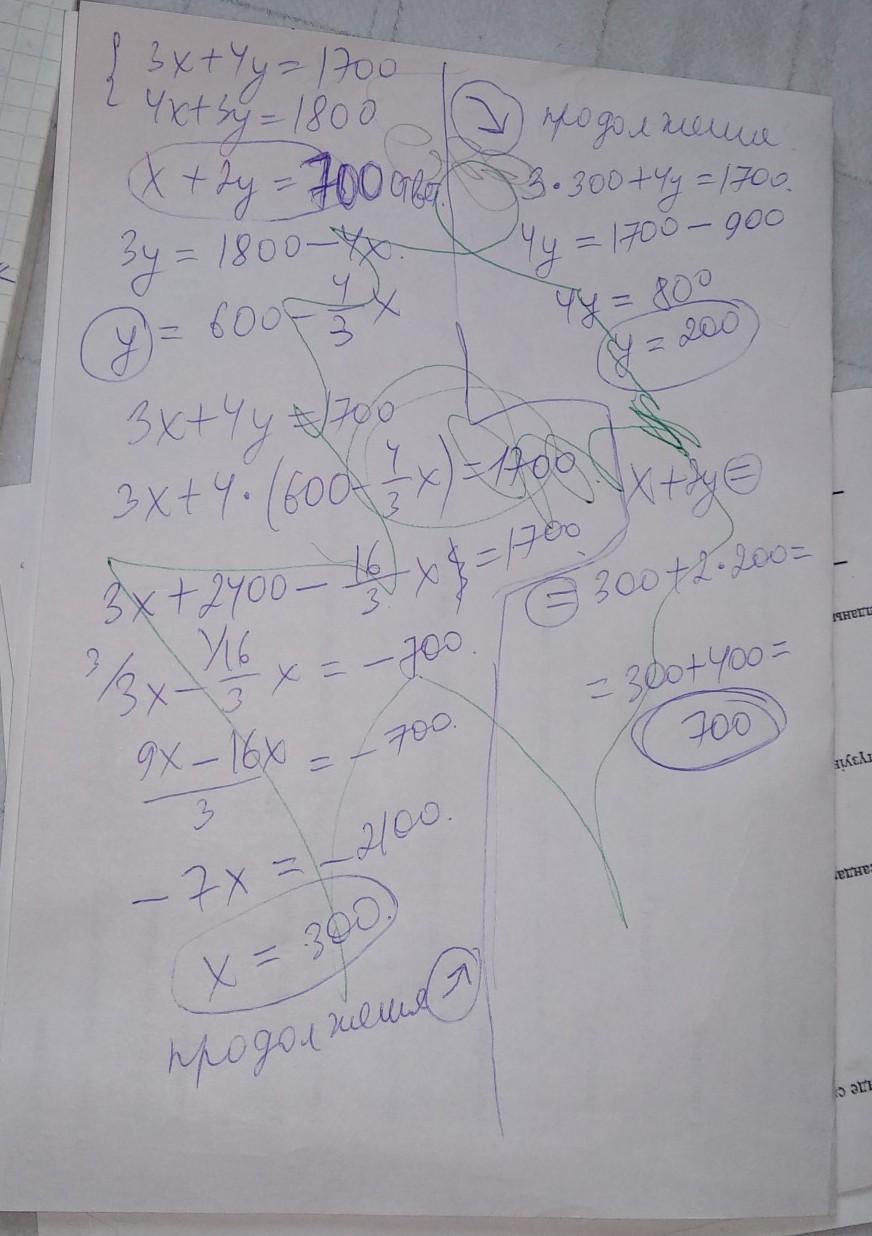 { 3x+4y=1700
4x+3y=1800
x+2y=700 ответ.
3y=1800-4x.
y = 600-4/3x
3x+4y=1700
3x+4·(600-4/3x)=1700.
3x+2400-16/3x=1700.
3/3x-1/16/3x=-700.
9x-16x/3=-700.
-7x=-2100.
x=300.
продолжения ↗
↘ продолжения
3·300+4y=1700.
4y=1700-900
4y=800
y=200
x+2y=
=300+2·200=
=300+400=
700